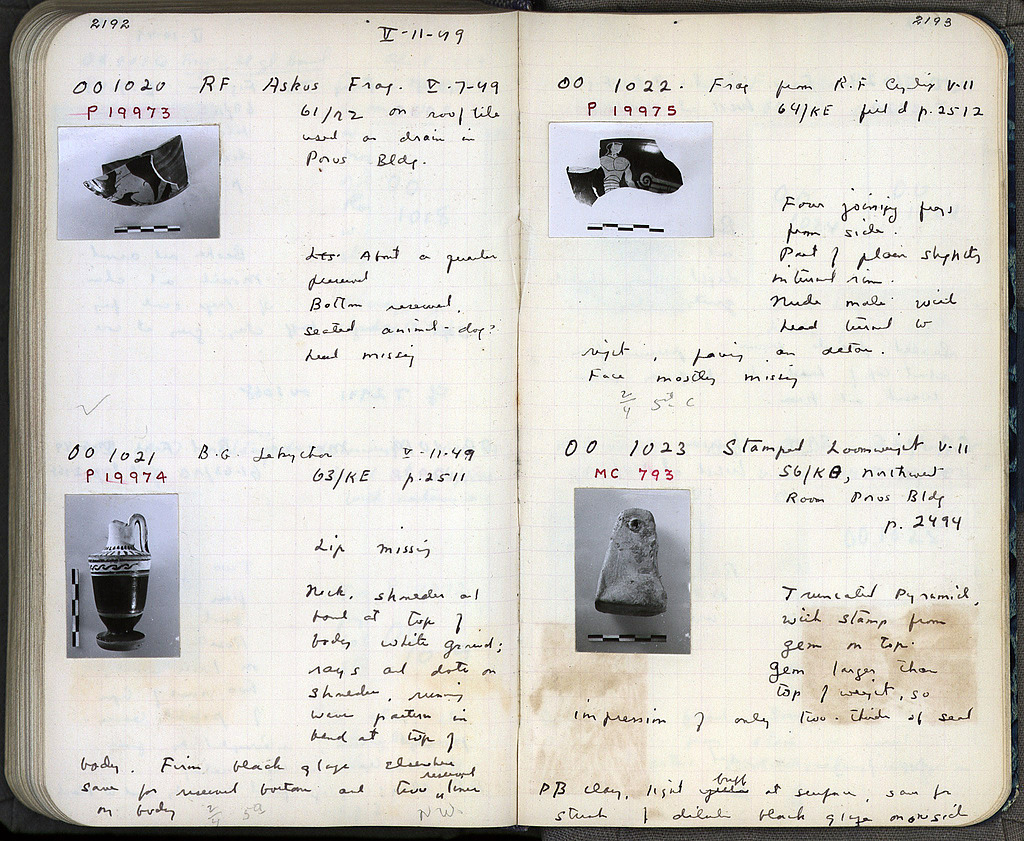 2192
V-11-49
OO 1020 RF Askos Frag. V-7-49
P 19973
61/ΛΖ on roof tile
used as drain in
Poros Bldg.
About a quarter
preserved
Bottom reserved,
seated animal - dog?
head missing
OO 1021 B.G. Lekythos V-11-49
P 19974
63/KE p.2511
Lip missing
Neck, shoulder and
band at top of
body white ground;
rays and dots on
shoulder, running
wave pattern in
band at top of
body. Firm black glaze elsewhere
save for reserved bottom and two reserved lines
on body
N.W.
2193
OO 1022. Frag from R.F Cylix V-11
P 19975
64/KE p.2512
Four joining frags
from side.
Part of plain slightly
inturned rim.
Nude male with
head turned to
right,
Face mostly missing
5th C
OO 1023 Stamped Loomweight V-11
MC 793
56/KΘ, Northwest
Room Poros Bldg
p. 2494
Truncated Pyramid,
with stamp from
gem on top.
gem larger than
top of weight, so
impression of only two-thirds of seal
PB clay, light buff at surface save for
streak of dilute black glaze on one side